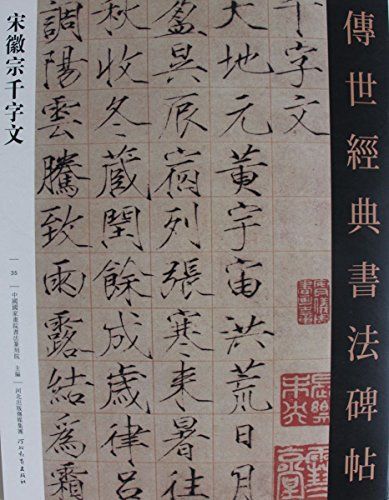 傳世經典書法碑帖
千字文
天地元黃宇宙洪荒日月
盈昃辰宿列張寒来暑往
秋收冬藏閏餘成歲律呂
調陽雲騰致雨露結為霜
宋徽宗千字文
35
中國國家畫院書法篆刻院 主編
河北出版傳媒集團
河北教育出版社